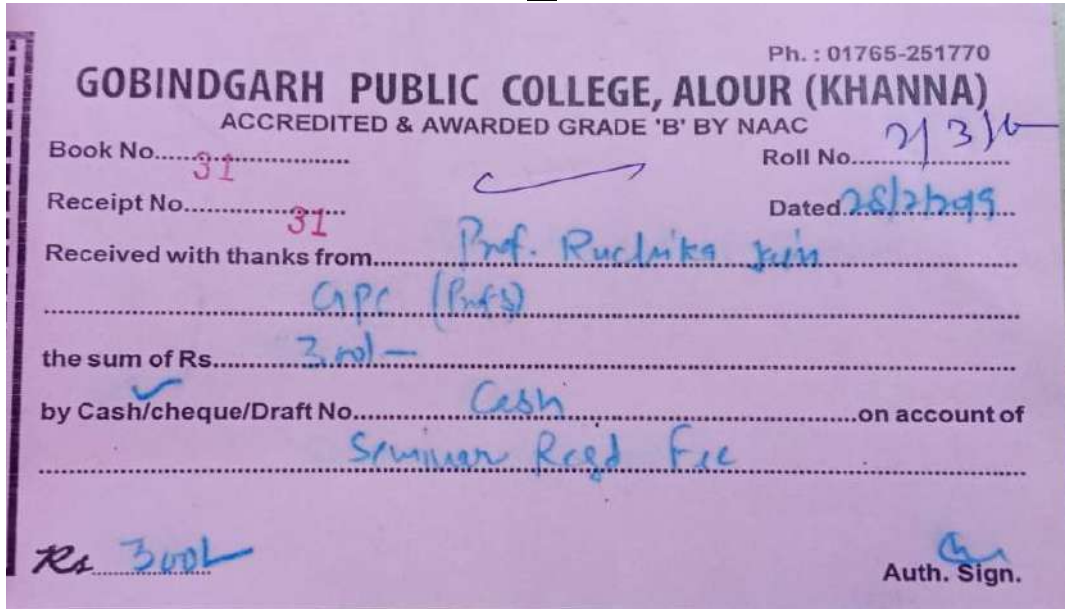 Ph. : 01765-251770
GOBINDGARH PUBLIC COLLEGE, ALOUR (KHANNA)
ACCREDITED & AWARDED GRADE 'B' BY NAAC
Book No. 31
Roll No.
Receipt No. 31
Dated 28/2/2019
Received with thanks from Prof. Ruchika Jain
GPC
the sum of Rs. 300/-
by Cash/cheque/Draft No. Cash on account of
Seminar Regd Fee
Rs 300/-
Auth. Sign.